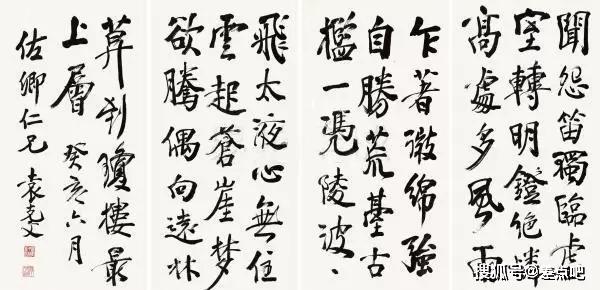 聞怨笛獨臨虛
室轉明鐙絕憐
高處多風雨
乍著微綿強
自勝荒臺古
檻一憑陵波
飛太液心無住
雲起蒼崖夢
欲騰偶向遠林
莫到瓊樓最
上層 癸亥六月
佐卿仁兄 袁克文
搜狐号@